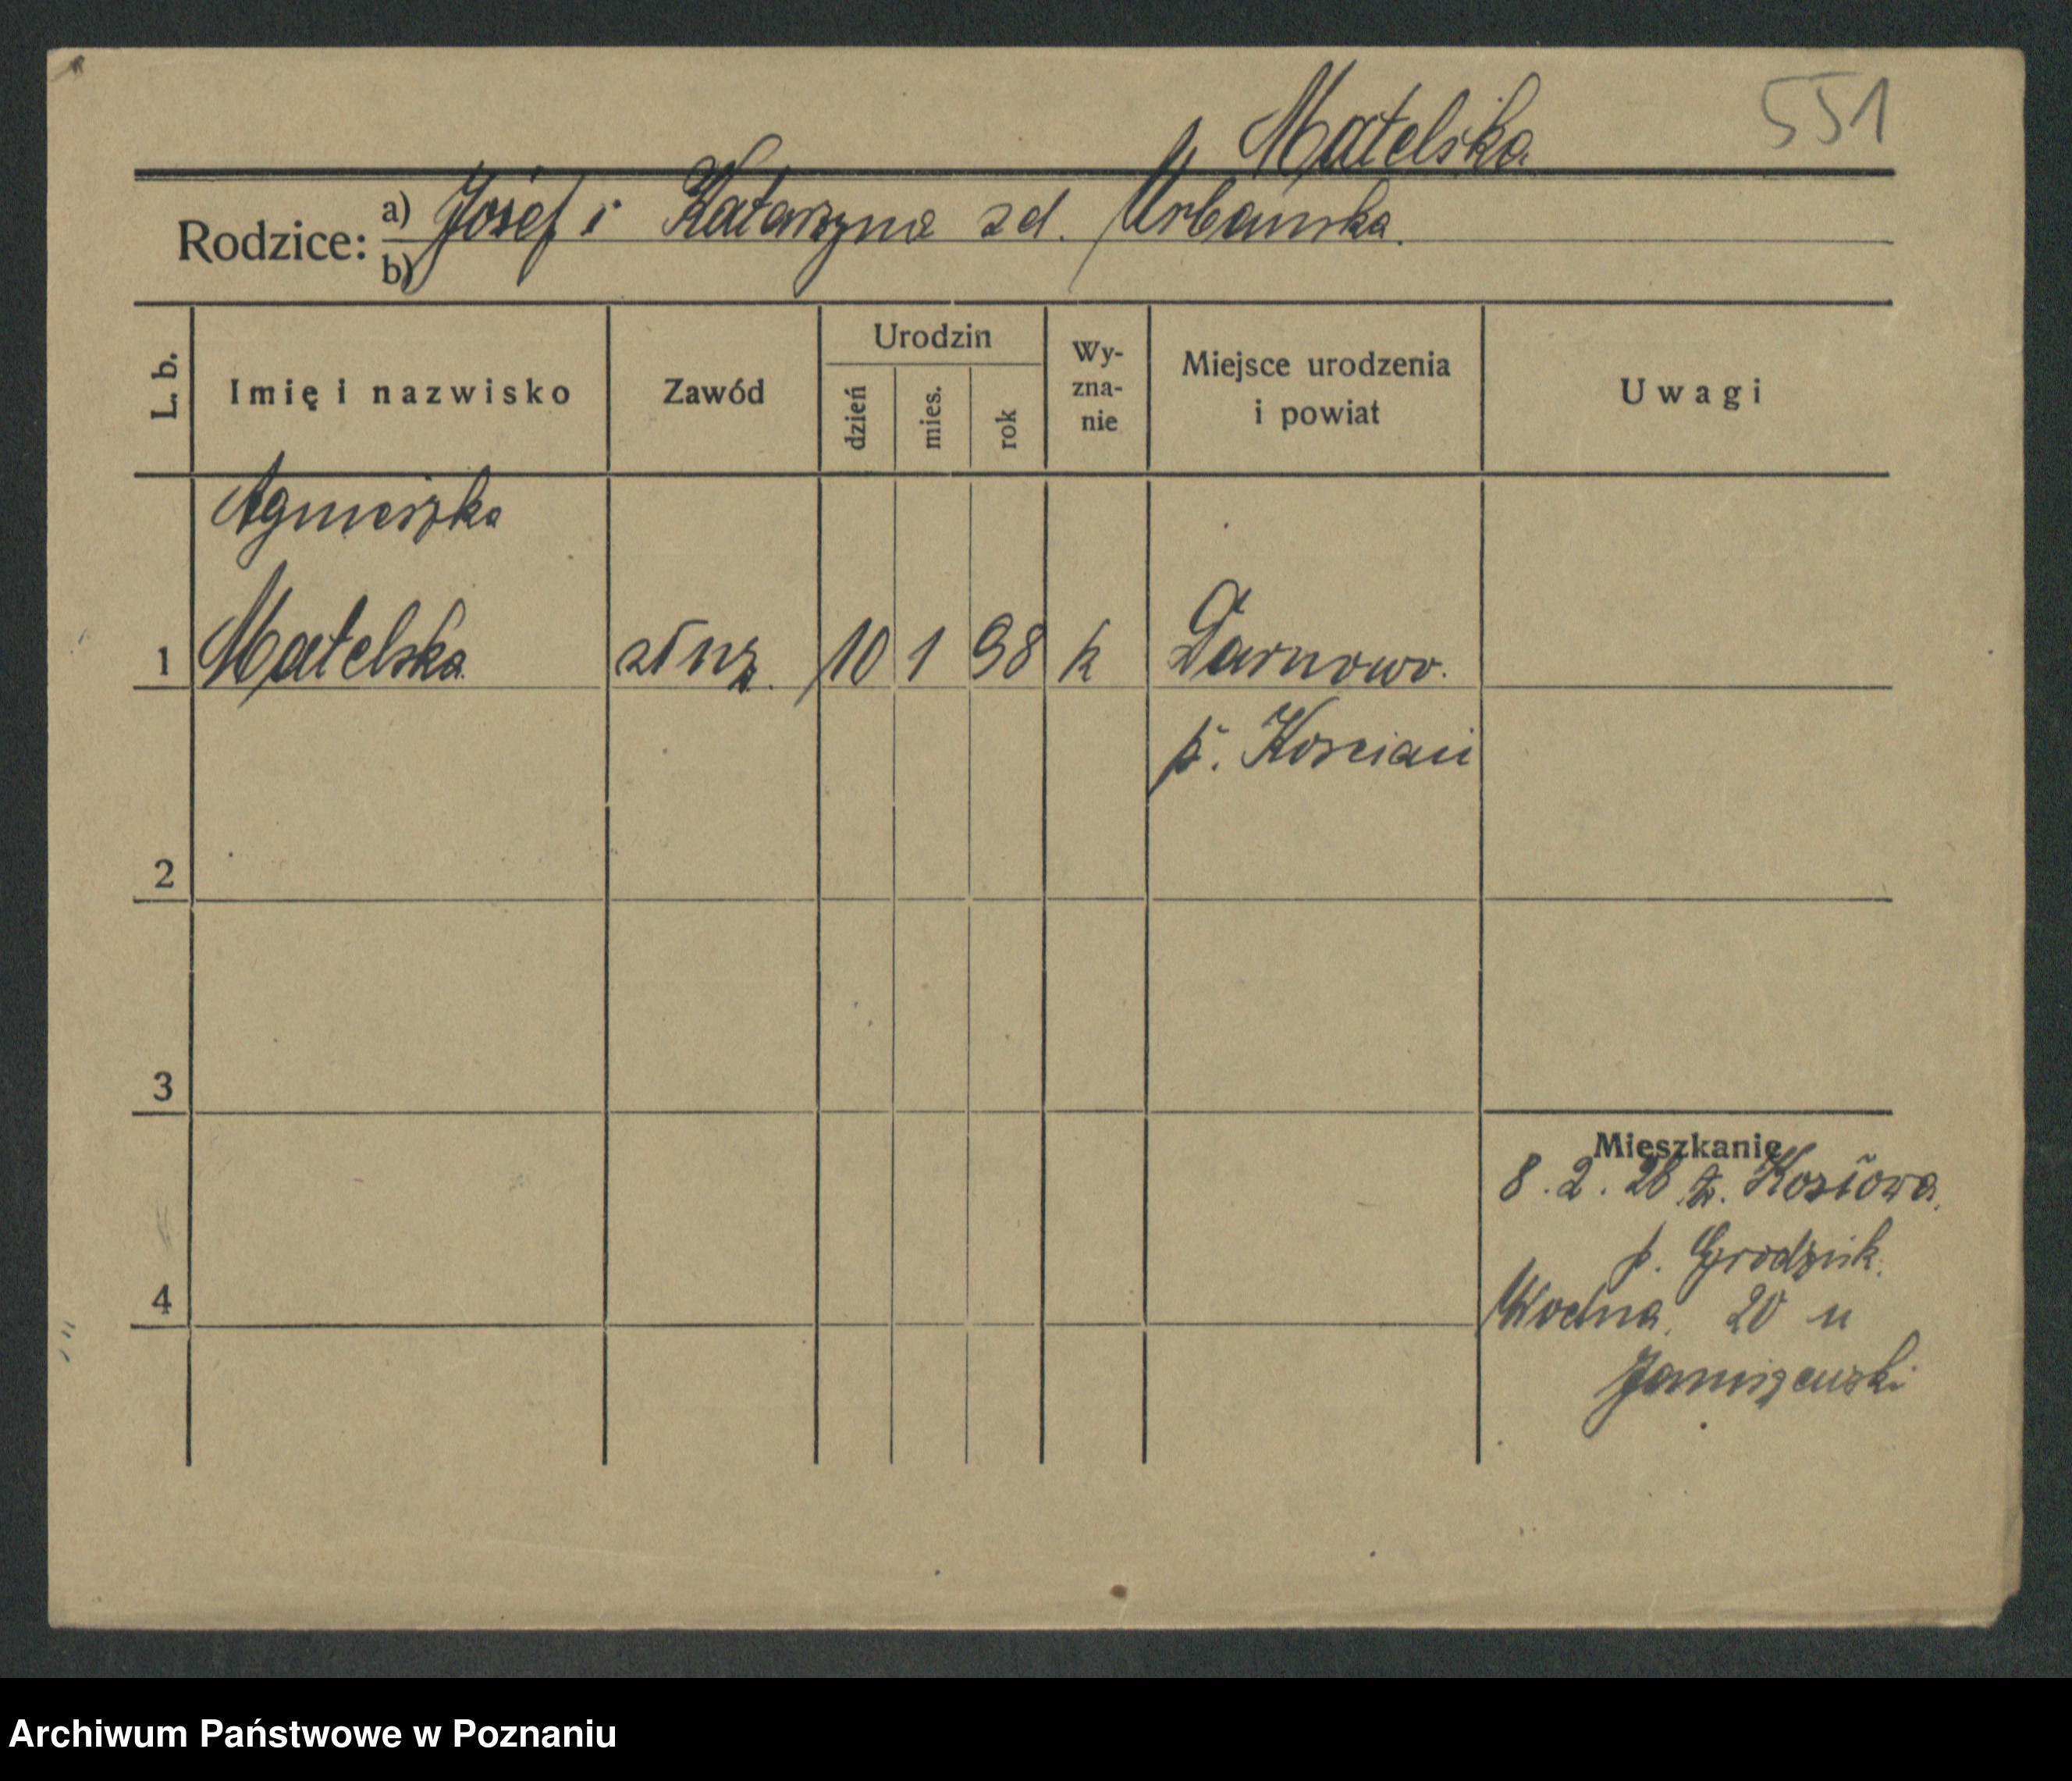 Matelska 551
Rodzice: a) Józef i Katarzyna zd. Urbańska.
b)
L. b. Imię i nazwisko Zawód Urodzin dzień mies. rok Wy-zna-nie Miejsce urodzenia i powiat Uwagi
Agnieszka
1 Matelska służ. 10 1 98 k Darnowo.
p. Kościan
2
3
Mieszkanie
8. 2. 28 z. Kozłowa.
p. Grodzisk.
4
Wodna. 20 u
Janiszewski
Archiwum Państwowe w Poznaniu